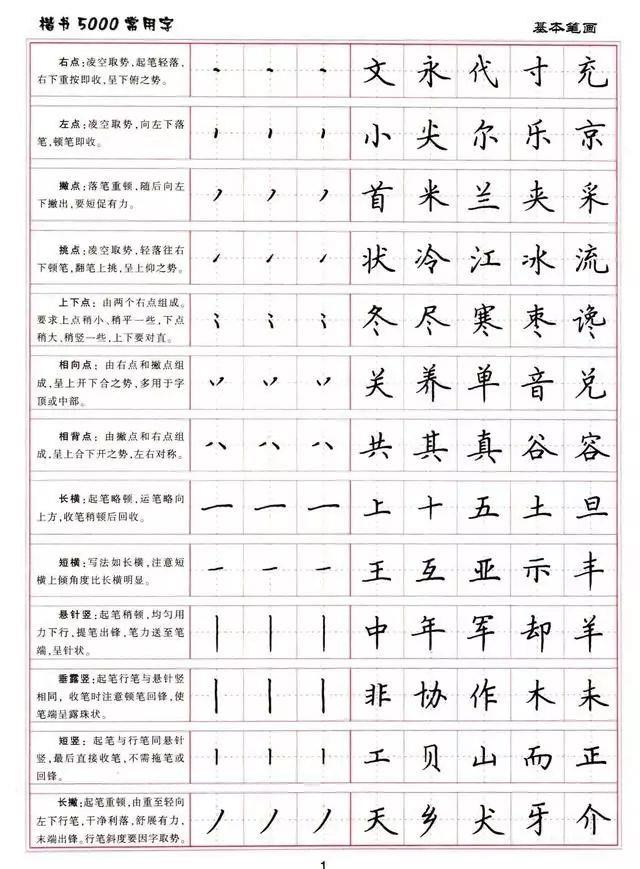 楷书5000常用字
基本笔画
右点:凌空取势,起笔轻落,
右下重按即收,呈下俯之势。
文永代寸充
左点:凌空取势,向左下落
笔,顿笔即收。
小尖尔乐京
撇点:落笔重顿,随后向左
下撇出,要短促有力。
首米兰夹采
挑点:凌空取势,轻落往右
下顿笔,翻笔上挑,呈上仰之势。
状冷江冰流
上下点:由两个右点组成。
要求上点稍小、稍平一些,下点
稍大、稍竖一些,上下要对直。
冬尽寒枣谗
相向点:由右点和撇点组
成,呈上开下合之势,多用于字
顶或中部。
关养单音兑
相背点:由撇点和右点组
成,呈上合下开之势,左右对称。
共其真谷容
长横:起笔略顿,运笔略向
上方,收笔稍顿后回收。
上十五土旦
短横:写法如长横,注意短
横上倾角度比长横明显。
王互亚示丰
悬针竖:起笔稍顿,均匀用
力下行,提笔出锋,笔力送至笔
端,呈针状。
中年军却羊
垂露竖:起笔行笔与悬针竖
相同,收笔时注意顿笔回锋,使
笔端呈露珠状。
非协作木未
短竖:起笔与行笔同悬针
竖,最后直接收笔,不需拖笔或
回锋。
工贝山而正
长撇:起笔重顿,由重至轻向
左下行笔,干净利落,舒展有力,
末端出锋。行笔斜度要因字取势。
天乡犬牙介
1